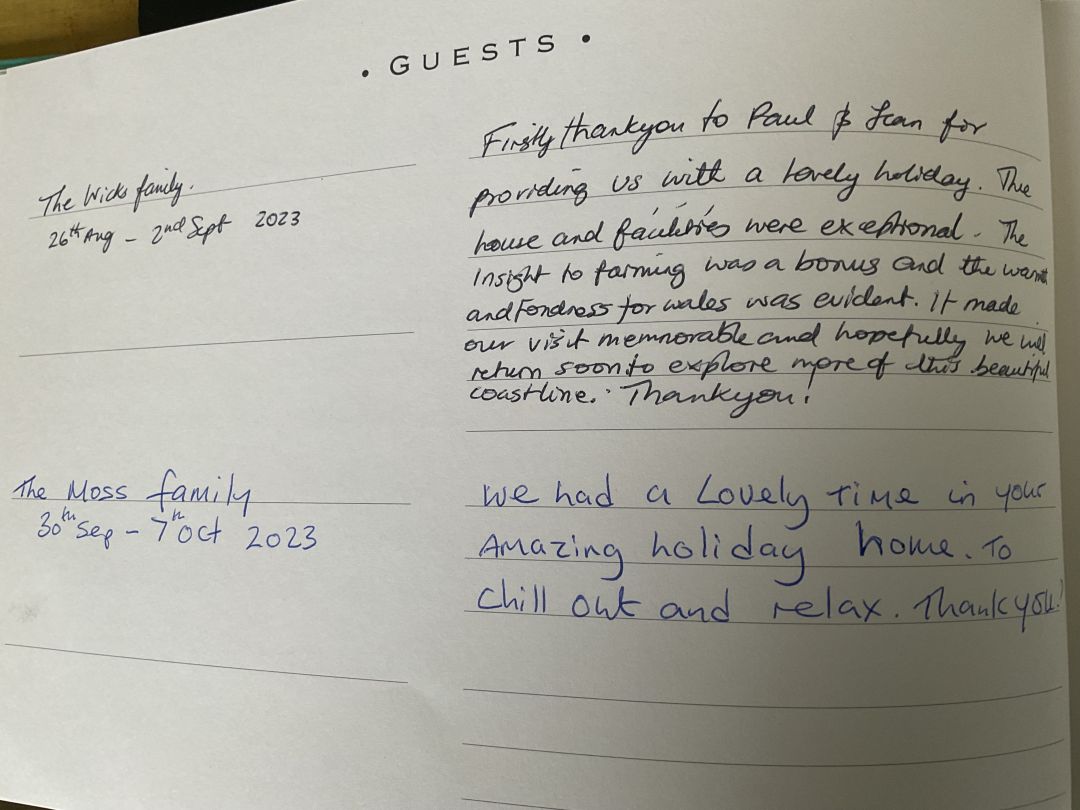 • GUESTS •
The Wicks family.
26th Aug - 2nd Sept 2023
Firstly thankyou to Paul & Jean for
providing us with a lovely holiday. The
house and facilities were exceptional. The
insight to farming was a bonus and the warmth
and Fondness for wales was evident. It made
our visit memnorable and hopefully we will
return soon to explore more of this beautiful
coastline. Thankyou!
The Moss family
30th Sep - 7th Oct 2023
we had a Lovely Time in your
Amazing holiday home. To
Chill out and relax. Thank you!